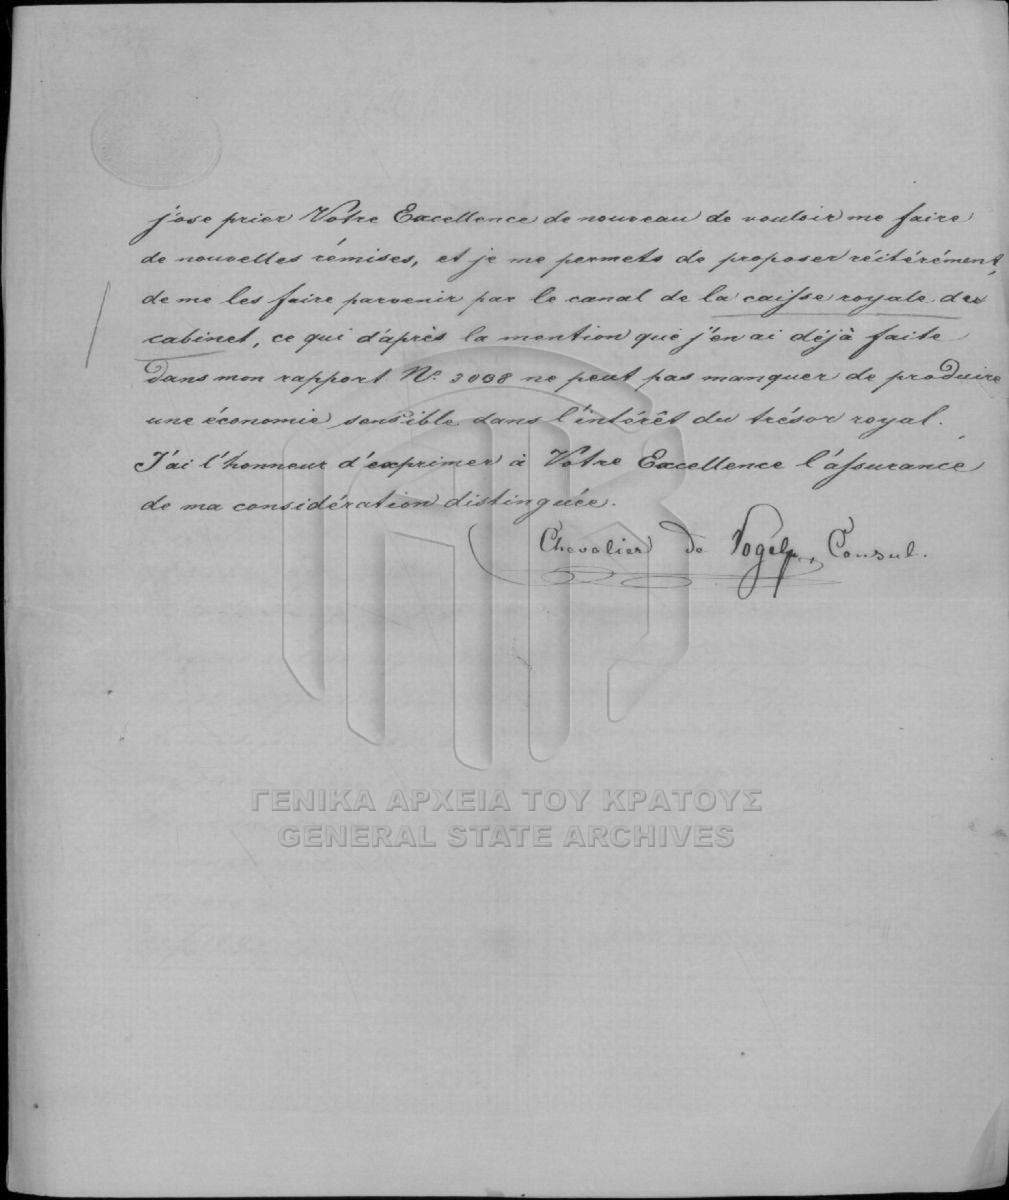 j'ose prier Votre Excellence de nouveau de vouloir me faire
de nouvelles rémises, et je me permets de proposer réitérément,
de me les faire parvenir par le canal de la caisse royale du
cabinet, ce qui d'après la mention que j'en ai déjà faite
dans mon rapport No. 3098 ne peut pas manquer de produire
une économie sensible dans l'intérêt du trésor royal.
J'ai l'honneur d'exprimer à Votre Excellence l'assurance
de ma considération distinguée.
Chevalier de Vogel, Consul.
ΓΕΝΙΚΑ ΑΡΧΕΙΑ ΤΟΥ ΚΡΑΤΟΥΣ
GENERAL STATE ARCHIVES